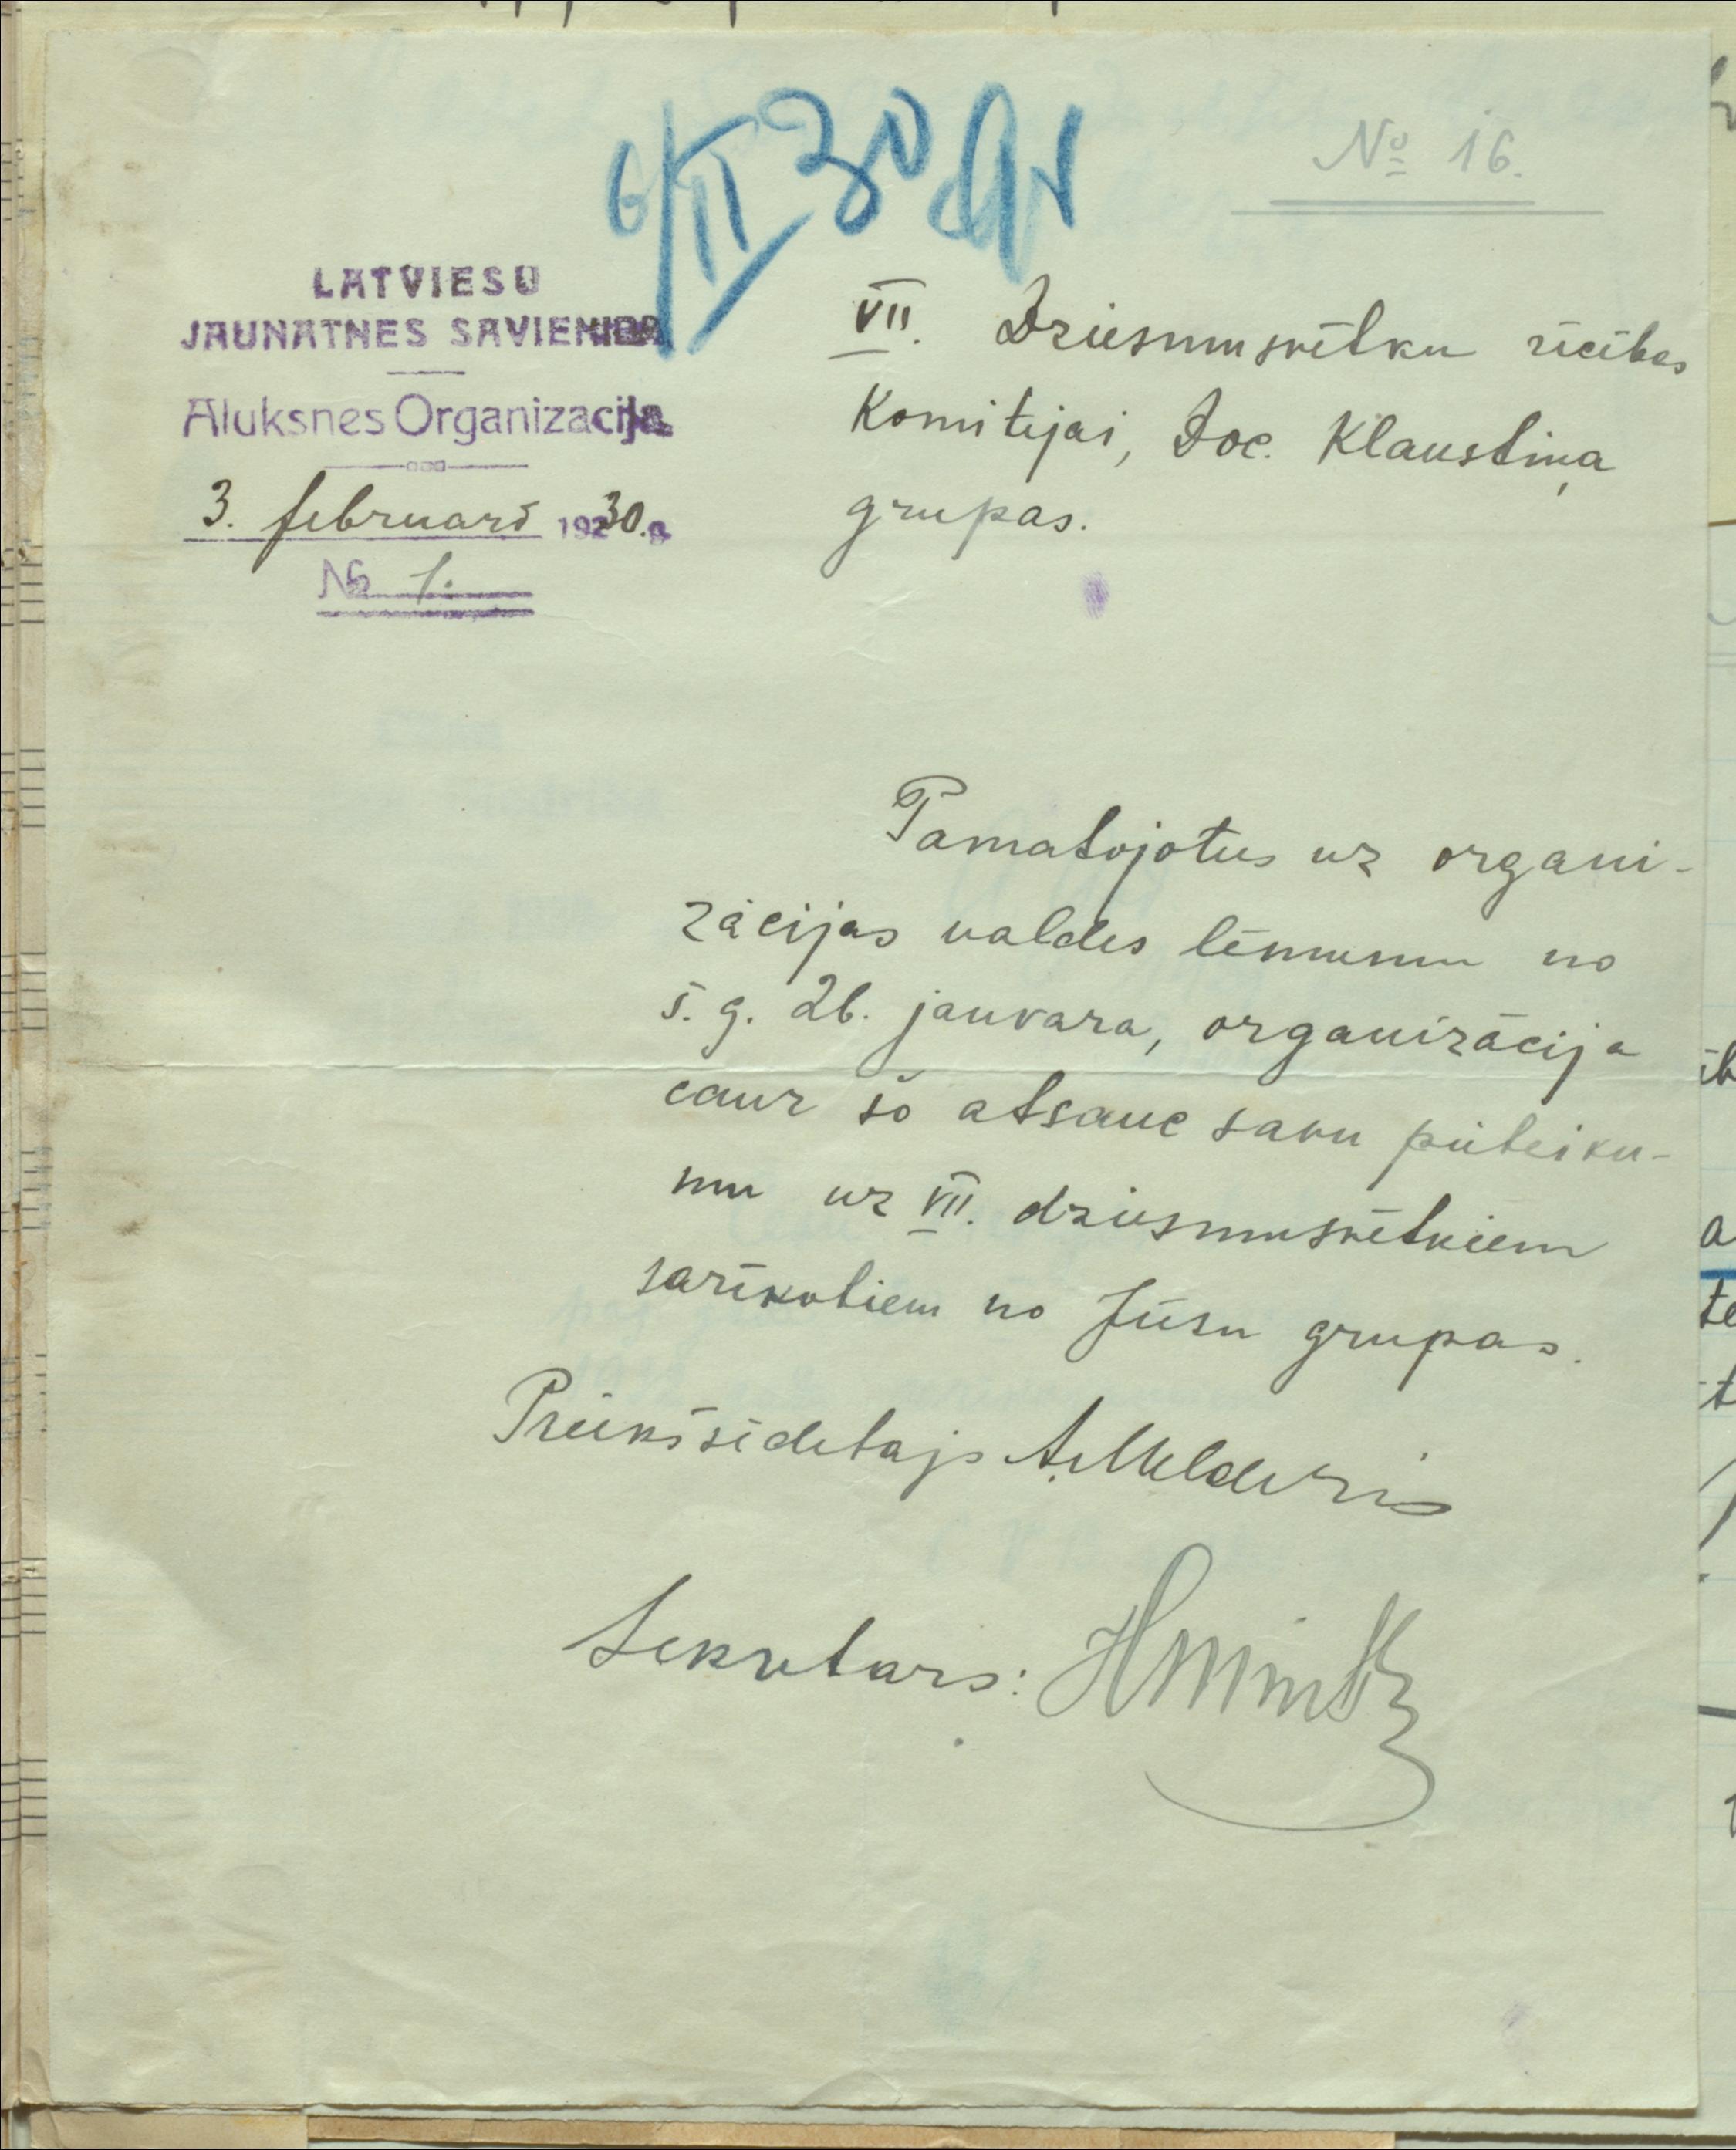 6/II 30
№ 16.
LATVIESU
JAUNATNES SAVIENIBA
Aluksnes Organizacija
3. februarī 19230.g.
№ 1.
VII. Dziesmusvētku rīcības
Komitejai, Doc. Klaustiņa
grupas.
Pamatojoties uz organi-
zācijas valdes lēmumu no
š. g. 26. janvara, organizācija
caur šo atsauc savu pieteiku-
mu uz VII. dziesmusvētkiem
sarīkotiem no Jūsu grupas.
Priekšsēdetajs A. Melderis
Sekretars: